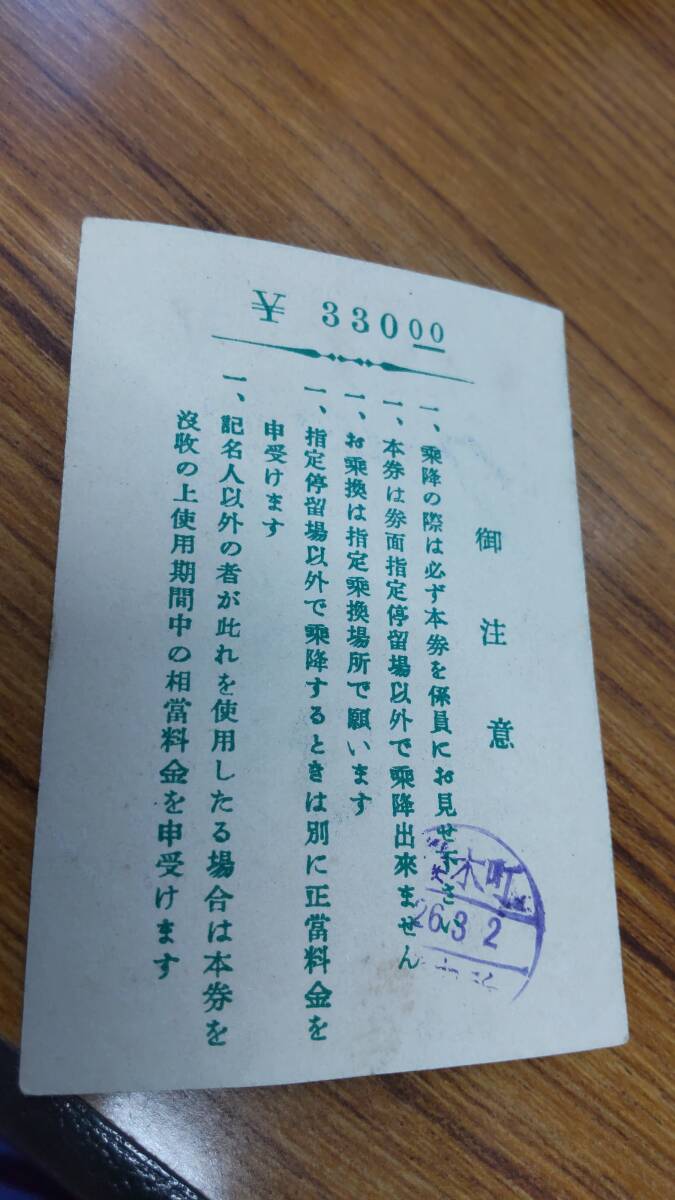 ¥ 33000
御注意
一、乗降の際は必ず本券を係員にお見せ下さい
一、本券は券面指定停留場以外で乗降出来ません
一、お乗換は指定乗換場所で願います
一、指定停留場以外で乗降するときは別に正當料金を
申受けます
一、記名人以外の者が此れを使用したる場合は本券を
沒收の上使用期間中の相當料金を申受けます
木町
26.3.2